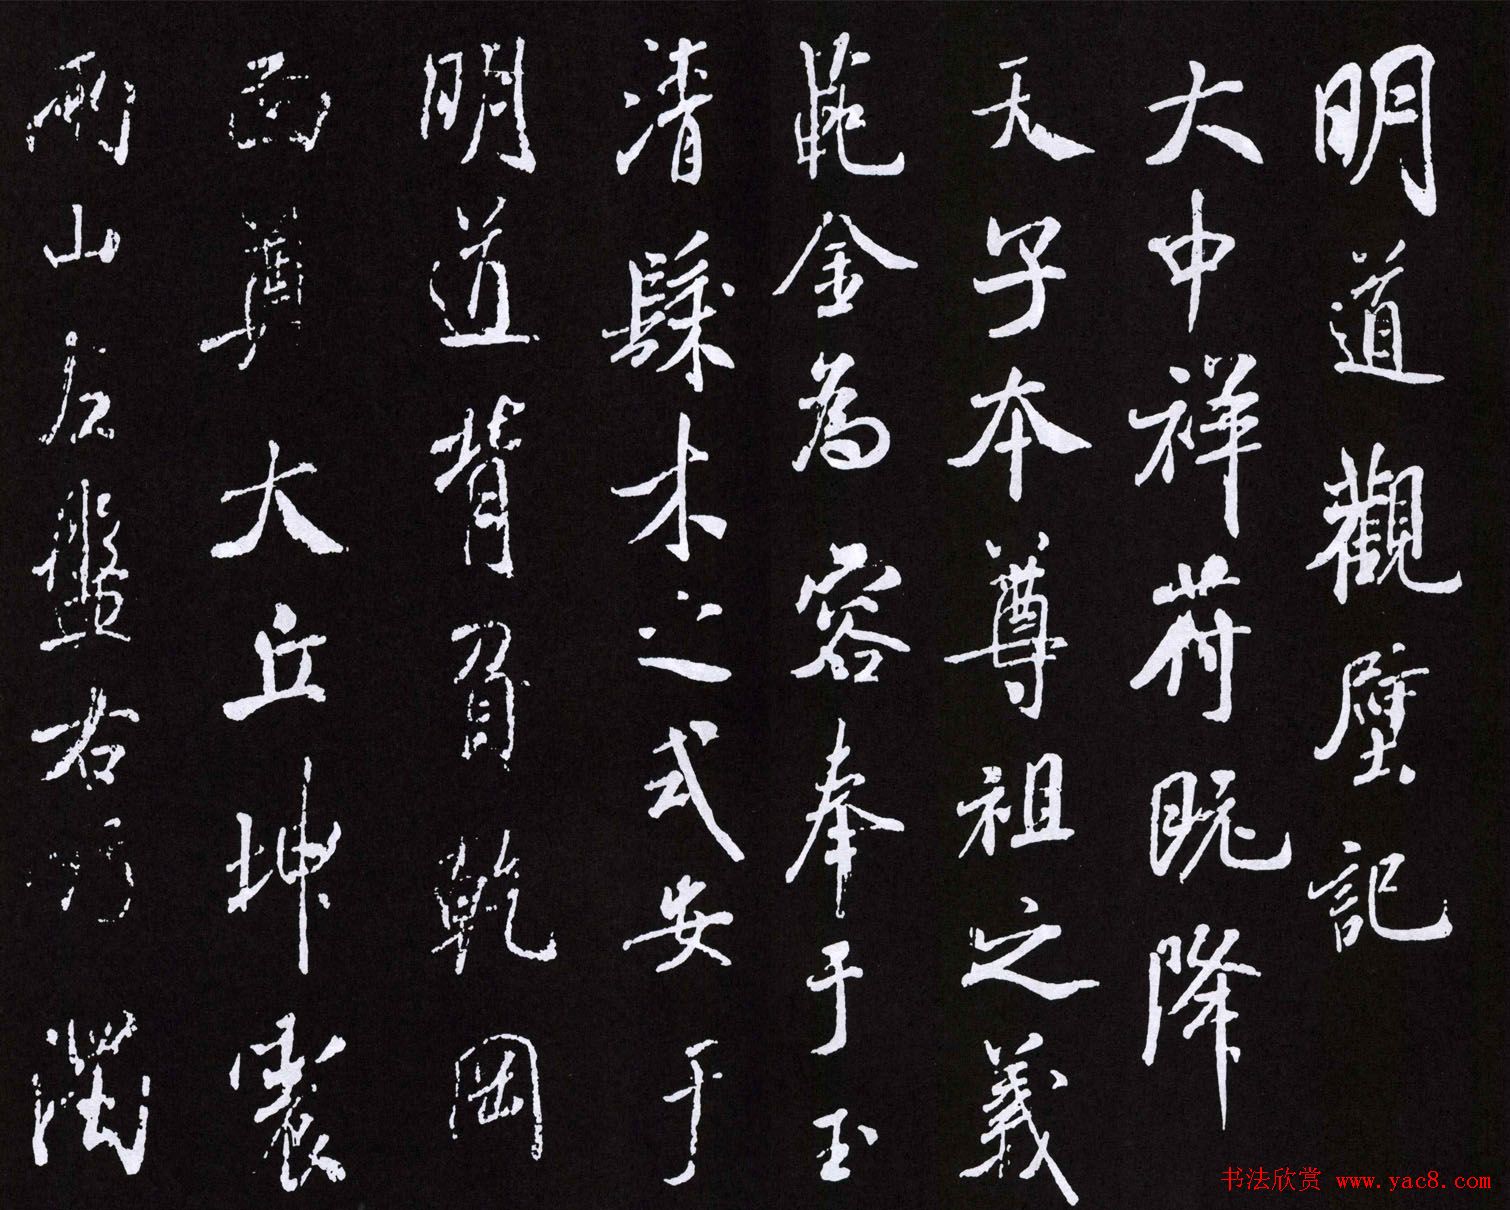 明道觀壁記
大中祥符既降
天子本尊祖之義
範金為容奉于玉
清髹木之式安于
明道背負乾岡
面尊大丘坤震
兩山辰盤右
书法欣赏 www.yac8.com